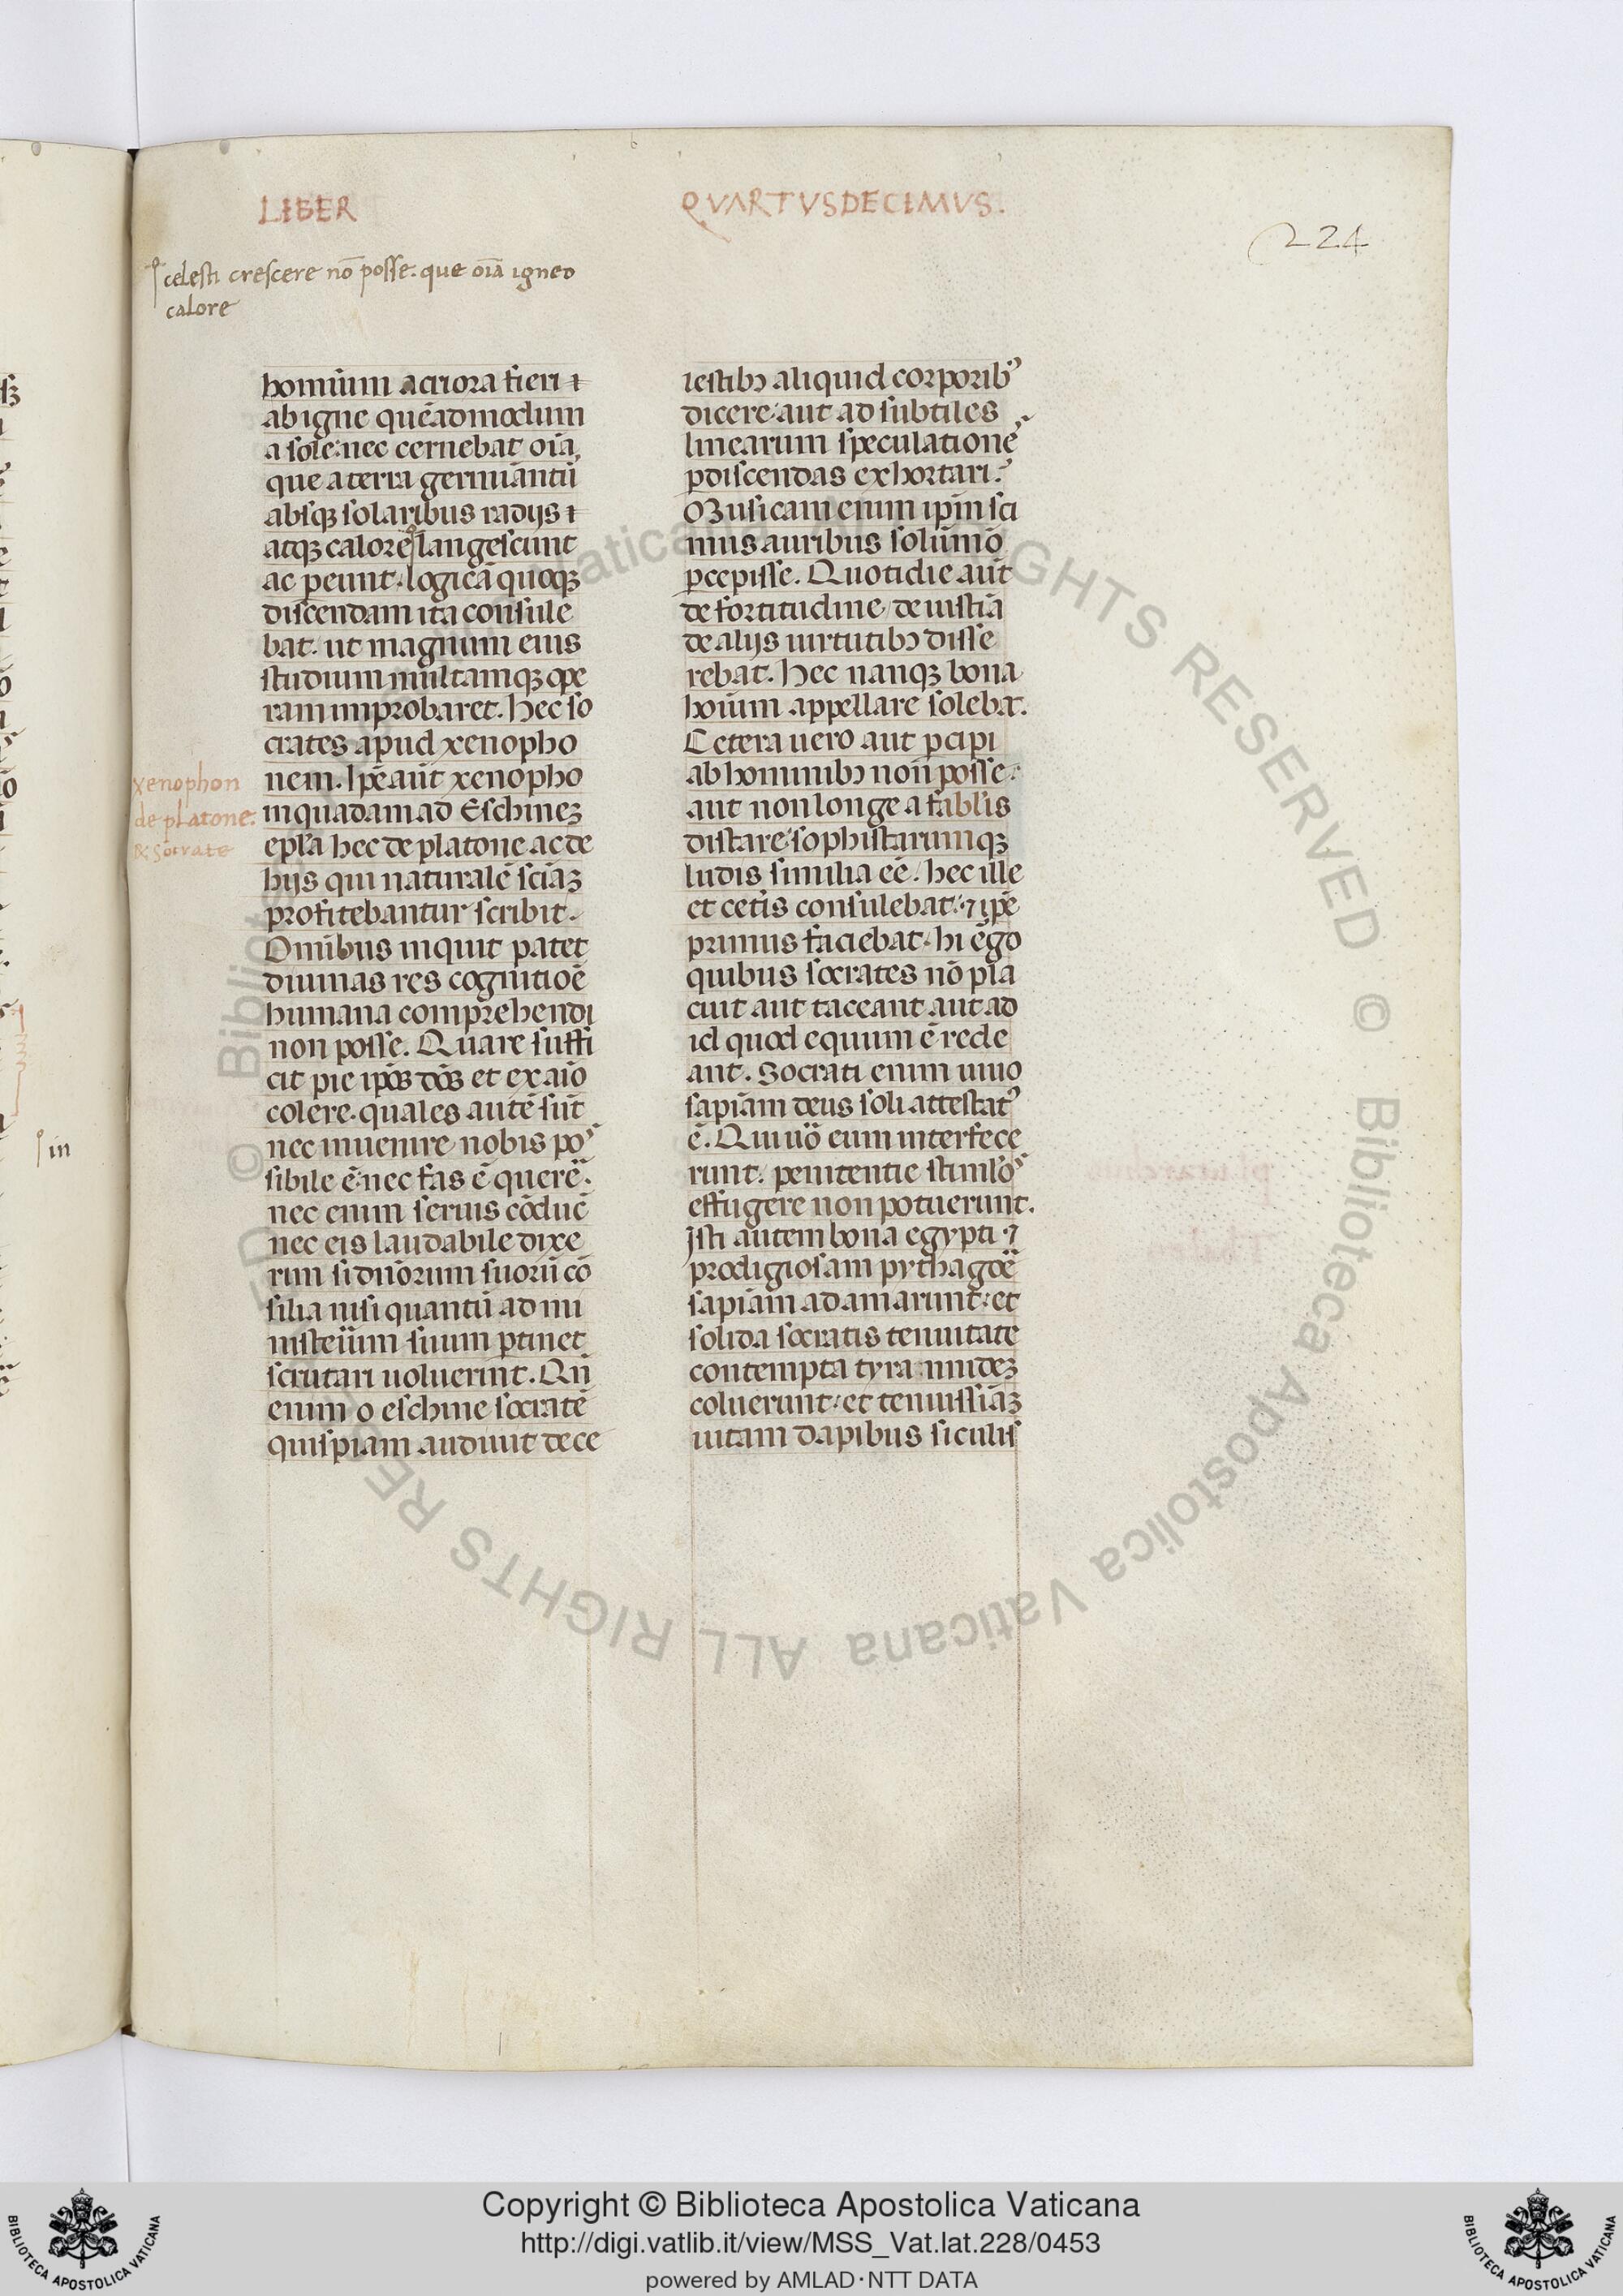 LIBER
QVARTVSDECIMVS.
224
celesti crescere nō posse. que oīa igneo
calore
homium acriora fieri ⁊
ab igne quēadmodum
a sole: nec cernebat oīa
que a terra germinantū
absqꝫ solaribus radijs ⁊
atqꝫ calore langescunt
ac pereunt. logicā quoqꝫ
discendam ita consule
bat. ut magnum eius
studium multamqꝫ ope
ram improbaret. hec so
crates apud xenopho
nem. Ipē aūt xenopho
in quadam ad Eschineꝫ
epl̄a hec de platone ac de
hijs qui naturalē sciāꝫ
profitebantur scribit.
Omībus inquit patet
diuinas res cognitiōe
humana comprehendi
non posse. Quare suffi
cit pie ip̄os dōs et ex aīo
colere. quales autē sūt
nec inuenire nobis pos
sibile ē. nec fas ē querē.
nec enim seruis cōducē
nec eis laudabile dixe
rim si dn̄orum suorū cō
silia nisi quantū ad mi
nisteriūm suum ꝑtinet
scrutari uoluerint. Qn̄
enim o eschine socratē
quispiam audiuit de ce
xenophon
de platone.
& Socrate
in
lestibꝫ aliquid corporibꝰ
dicere: aut ad subtiles
linearum speculationes
ꝑdiscendas exhortari?
Musicam enim ip̄m sci
mus auribus solūmō
ꝑcepisse. Quotidie aūt
de fortitudine de iustīa
de alijs uirtutibꝫ disse
rebat. Hec nanqꝫ bona
hoīum appellare solebat.
Cetera uero aut ꝑcipi
ab hominibꝫ non posse:
aut non longe a fabl̄is
distare: sophistarumqꝫ
ludis similia eē. hec ille
et cet̄is consulebat: ⁊ ipē
primus faciebat. hi ergo
quibus socrates nō pla
cuit aut taceant aut ad
id quod equum ē rede
ant. Socrati enim uiuo
sapīam deus soli attestatꝰ
ē. Qui uō eum interfece
runt. penitentie stimlōs
effugere non potuerunt.
Isti autem bona egypti ⁊
prodigiosam pythagore
sapīam adamarunt: et
solida socratis tenuitate
contempta tyrannideꝫ
coluerunt: et tenuissīaꝫ
uitam dapibus siculis
© Biblioteca Apostolica Vaticana ALL RIGHTS RESERVED
© Biblioteca Apostolica Vaticana ALL RIGHTS RESERVED
BIBLIOTECA APOSTOLICA VATICANA
Copyright © Biblioteca Apostolica Vaticana
http://digi.vatlib.it/view/MSS_Vat.lat.228/0453
powered by AMLAD·NTT DATA
BIBLIOTECA APOSTOLICA VATICANA